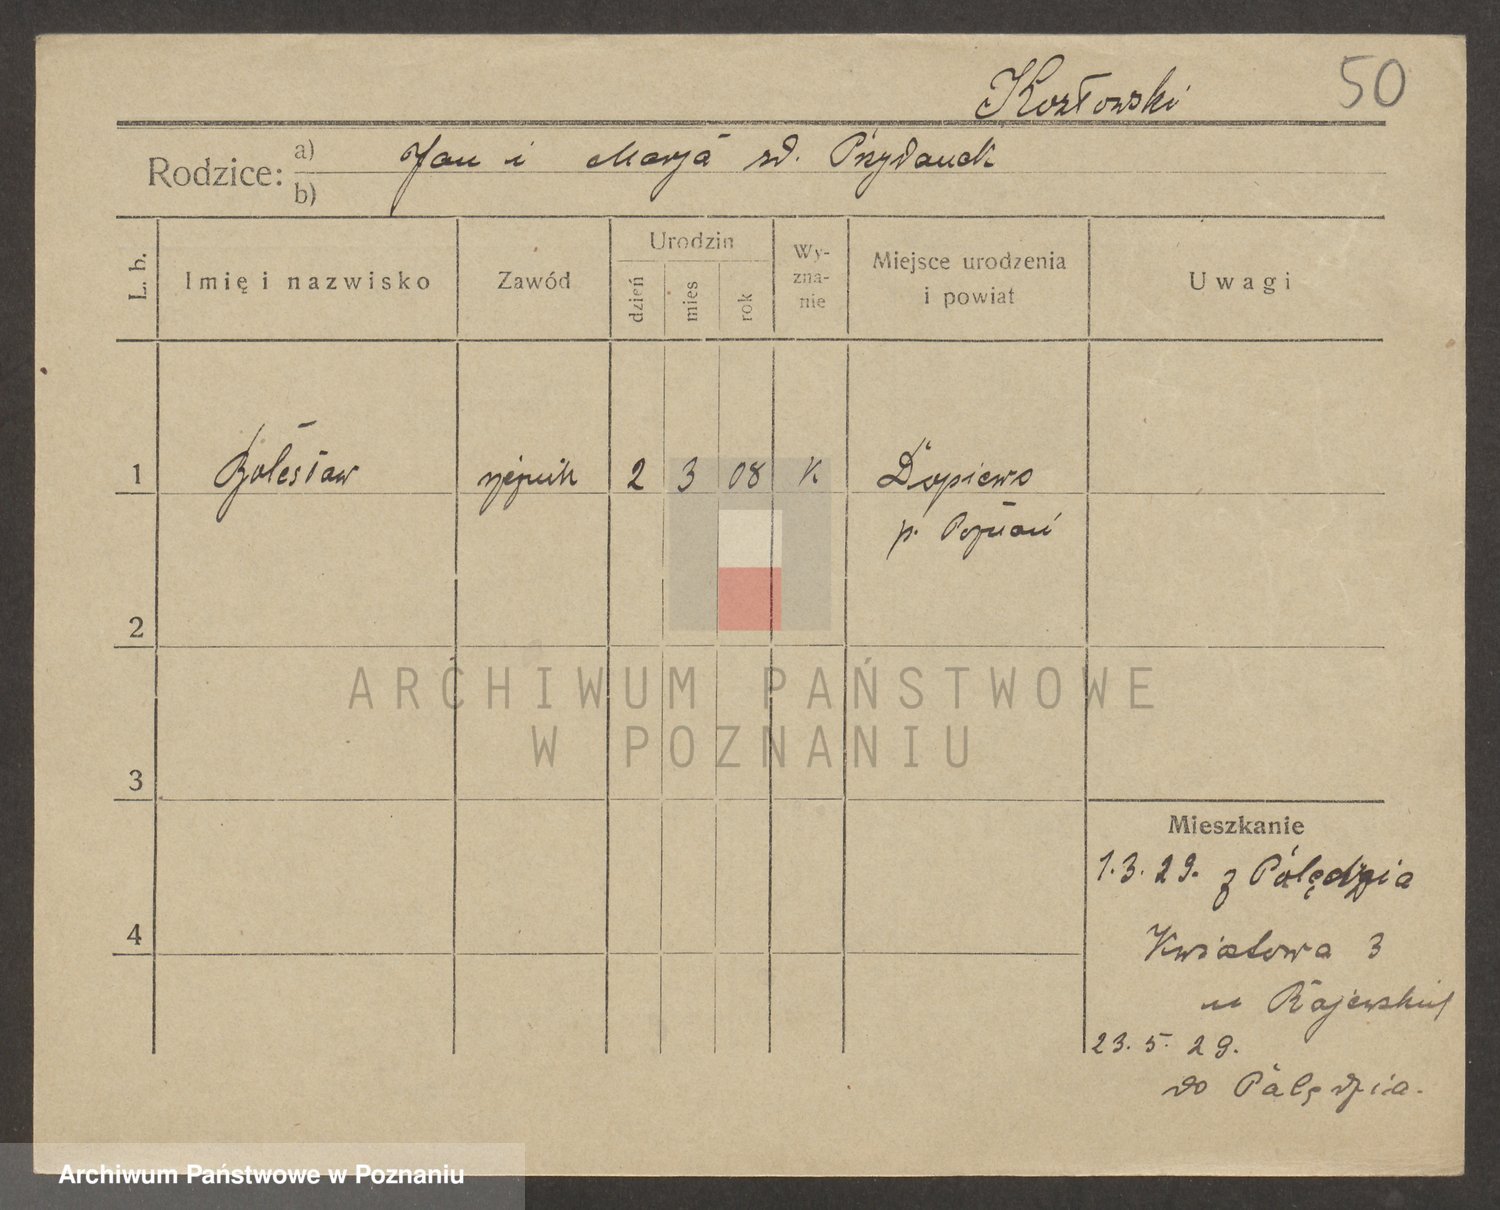 50
Kozłowski
Rodzice: a) Jan i Marja zd. Przydanek
b)
L. b.
Imię i nazwisko
Zawód
Urodzin
dzień
mies
rok
Wy-
zna-
nie
Miejsce urodzenia
i powiat
Uwagi
1 Bolesław 2 3 08 K Dopiewo
p. Poznań
2
3
4
Mieszkanie
1.3.29. z Palędzia
Kwiatowa 3
u Rajewskiej
23.5.29.
do Palędzia.
ARCHIWUM PAŃSTWOWE
W POZNANIU
Archiwum Państwowe w Poznaniu